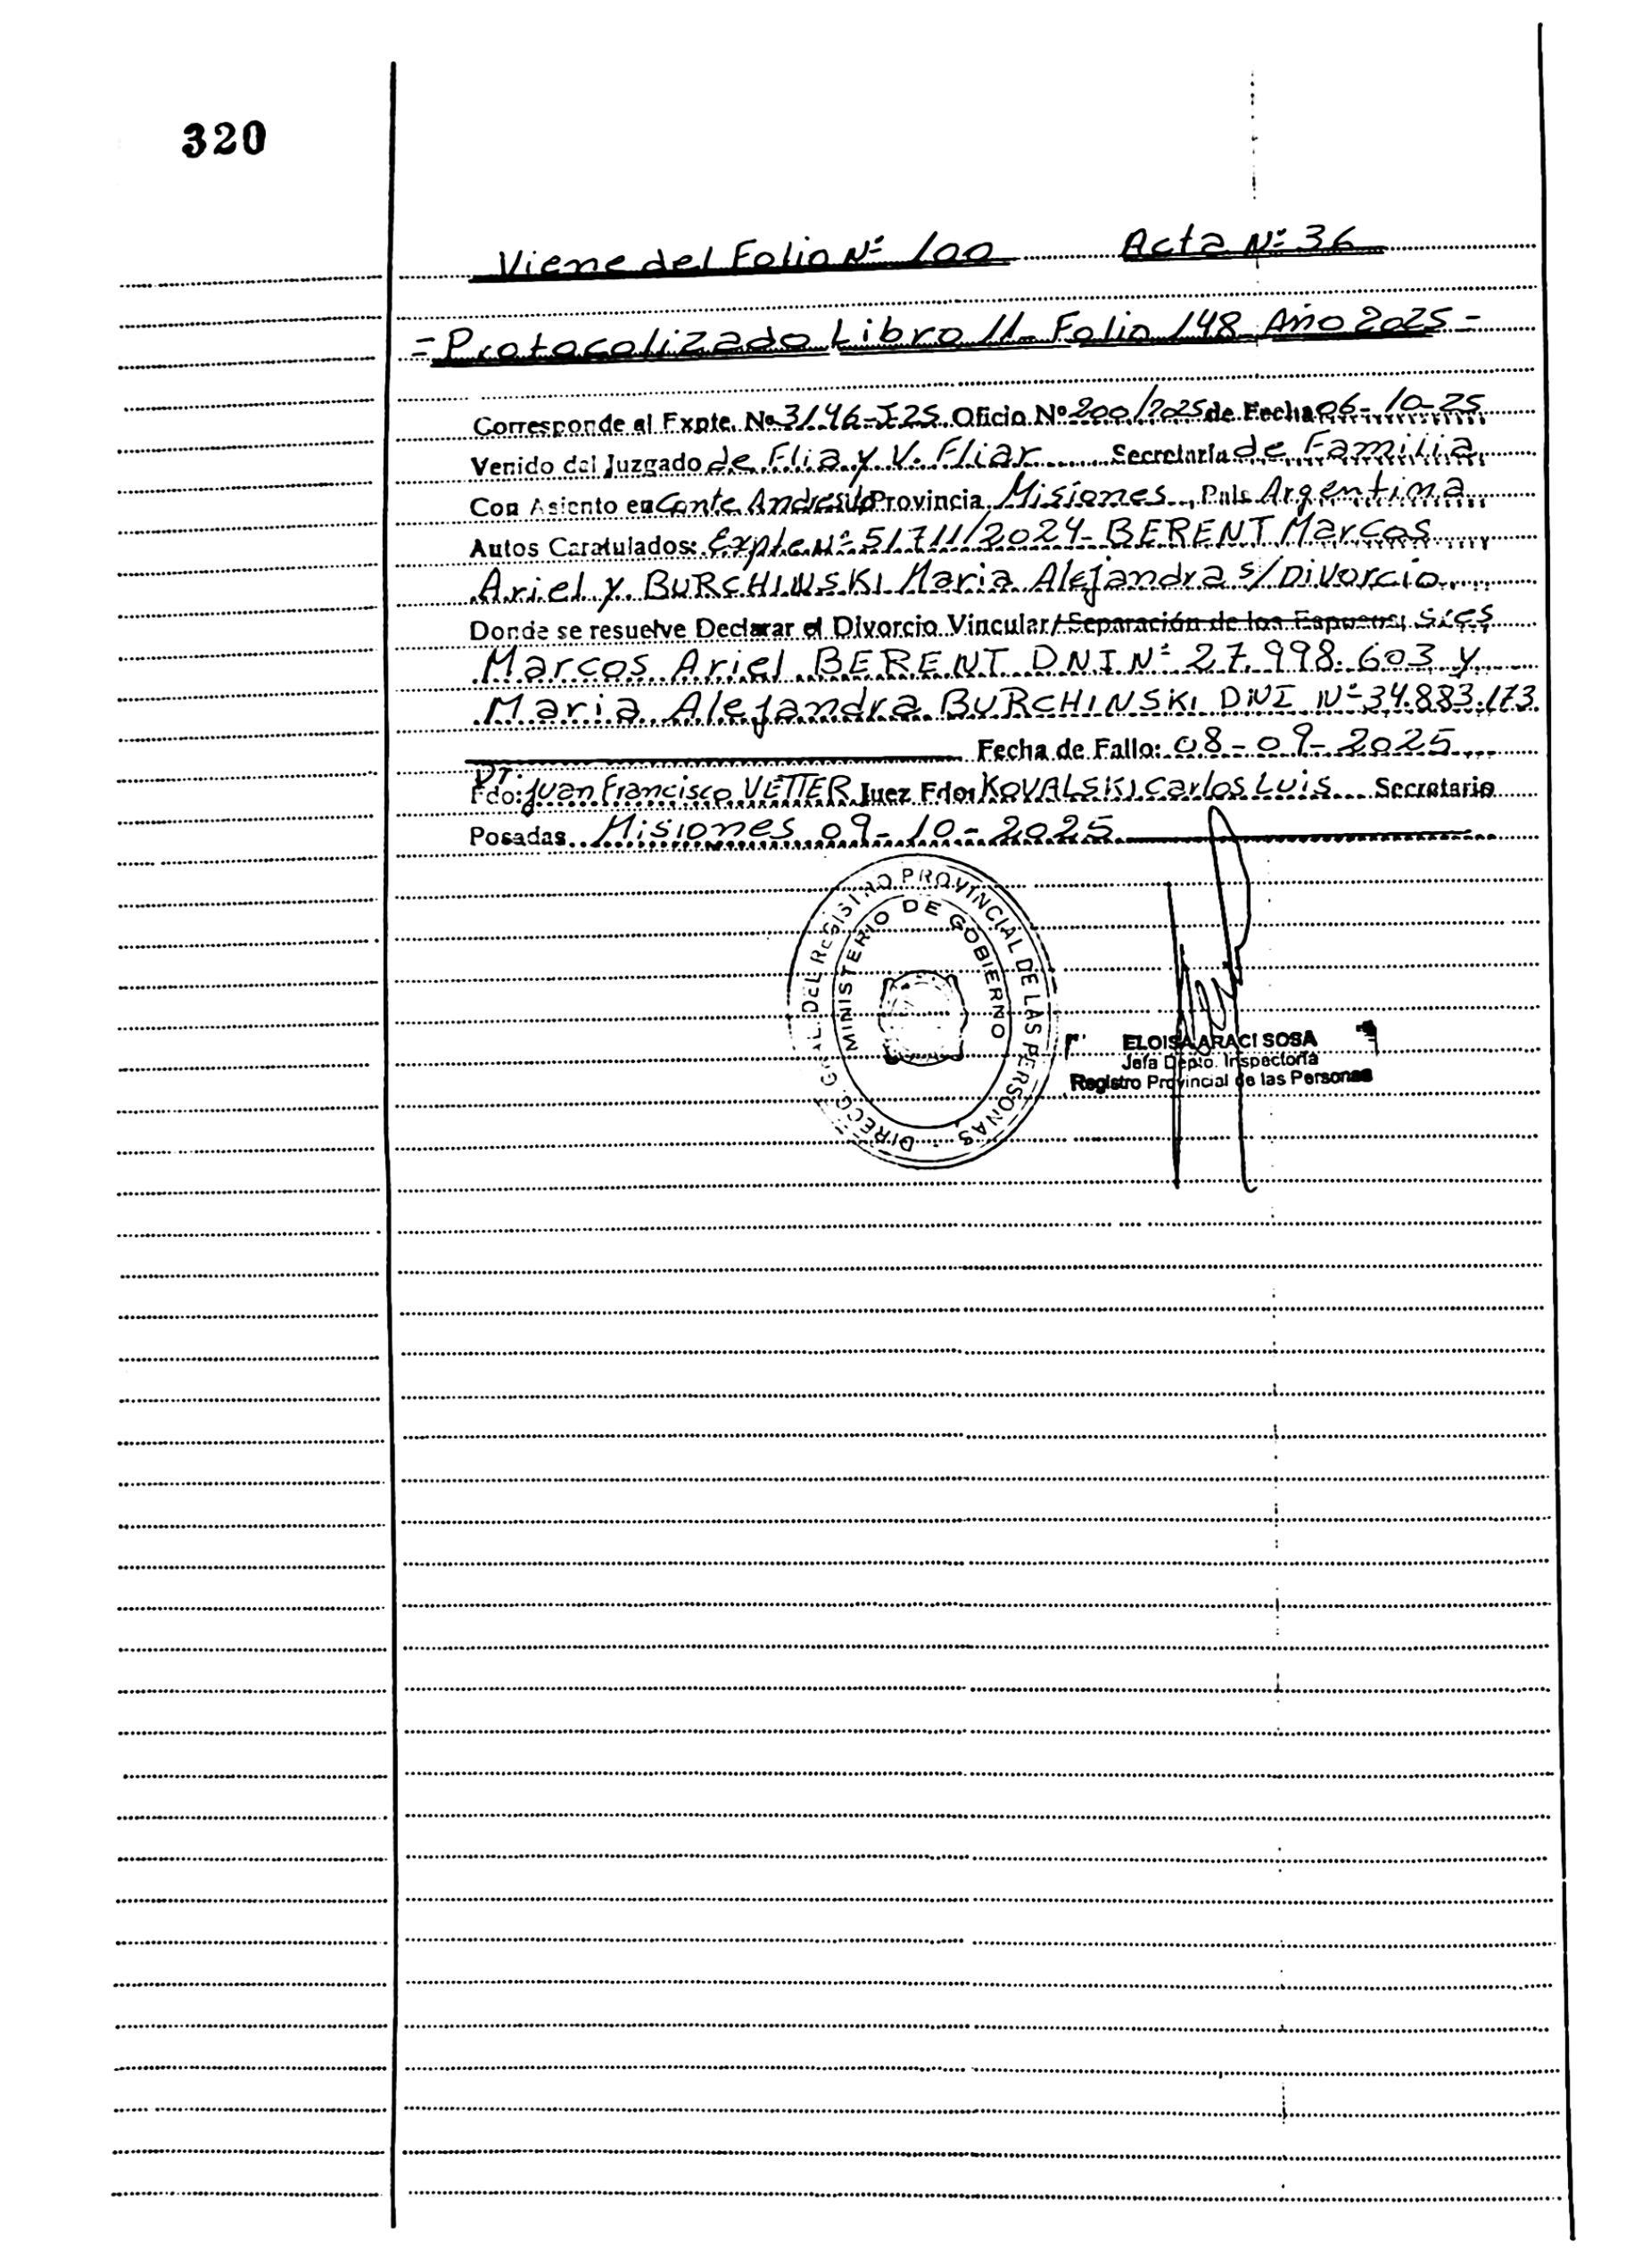 320
Viene del Folio Nº 100 Acta Nº 36
=Protocolizado Libro 11 Folio 148 Año 2025=
Corresponde al Expte. Nº 3146-I-25 Oficio Nº 200/2025 de Fecha 06-10-25
Venido del Juzgado de Flia y V. Fliar Secretaría de Familia
Con Asiento en Cante Andresito Provincia Misiones, País Argentina
Autos Caratulados: Expte Nº 51711/2024- BERENT Marcos
Ariel y BURCHINSKI Maria Alejandra s/ Divorcio
Donde se resuelve Declarar el Divorcio Vincular/Separación de los Esposos; Sres
Marcos Ariel BERENT DNI Nº 27.998.603 y
Maria Alejandra BURCHINSKI DNI Nº 34.883.173
Fecha de Fallo: 08-09-2025
Fdo: Dr. Juan Francisco VETTER Juez Fdo: KOVALSKI Carlos Luis Secretario
Posadas Misiones 09-10-2025
DIRECC. GRAL. DEL REGISTRO PROVINCIAL DE LAS PERSONAS
MINISTERIO DE GOBIERNO
ELOISA ARACI SOSA
Jefa Depto. Inspectoría
Registro Provincial de las Personas